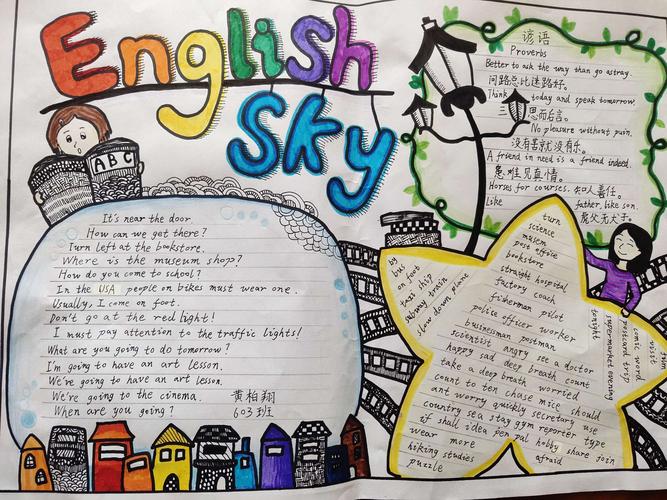 English
Sky
ABC
It's near the door.
How can we get there?
Turn left at the bookstore.
Where is the museum shop?
How do you come to school?
In the USA people on bikes must wear one.
Usually, I come on foot.
Don't go at the red light!
I must pay attention to the traffic lights!
What are you going to do tomorrow?
I'm going to have an art lesson.
We're going to have an art lesson.
We're going to the cinema.
When are you going?
黄柏翔
603班
谚语
Proverbs
Better to ask the way than go astray.
问路总比迷路好。
Think today and speak tomorrow
三思而后言。
No pleasure without pain.
没有苦就没有乐。
A friend in need is a friend indeed.
患难见真情。
Horses for courses. 知人善任。
Like father, like son.
虎父无犬子。
turn
science
musem
post office
bookstore
by
bus
on foot
taxi ship
subway train
slow down plane
straight hospital
factory coach
fisherman pilot
police officer worker
businessman postman
scientist angry see a doctor
happy sad deep breath count
take a deep breath worried
count to ten chase mice should
ant worry quickly secretary use
country sea stay gym reporter type
if shall idea pen pal hobby share join
wear more
afraid
hiking studies
puzzle
tonight
supermarket evening
postcard trip
comic word
visit